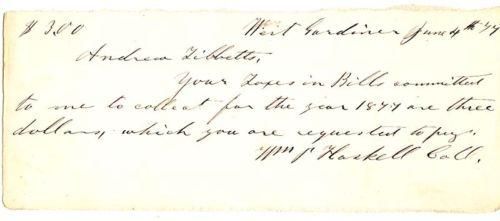 $ 3.00 West Gardiner June 4th 77
Andrew Tibbetts,
Your Taxes in Bills committed
to me to collect for the year 1877 are three
dollars, which you are requested to pay.
Wm F Haskell Coll.